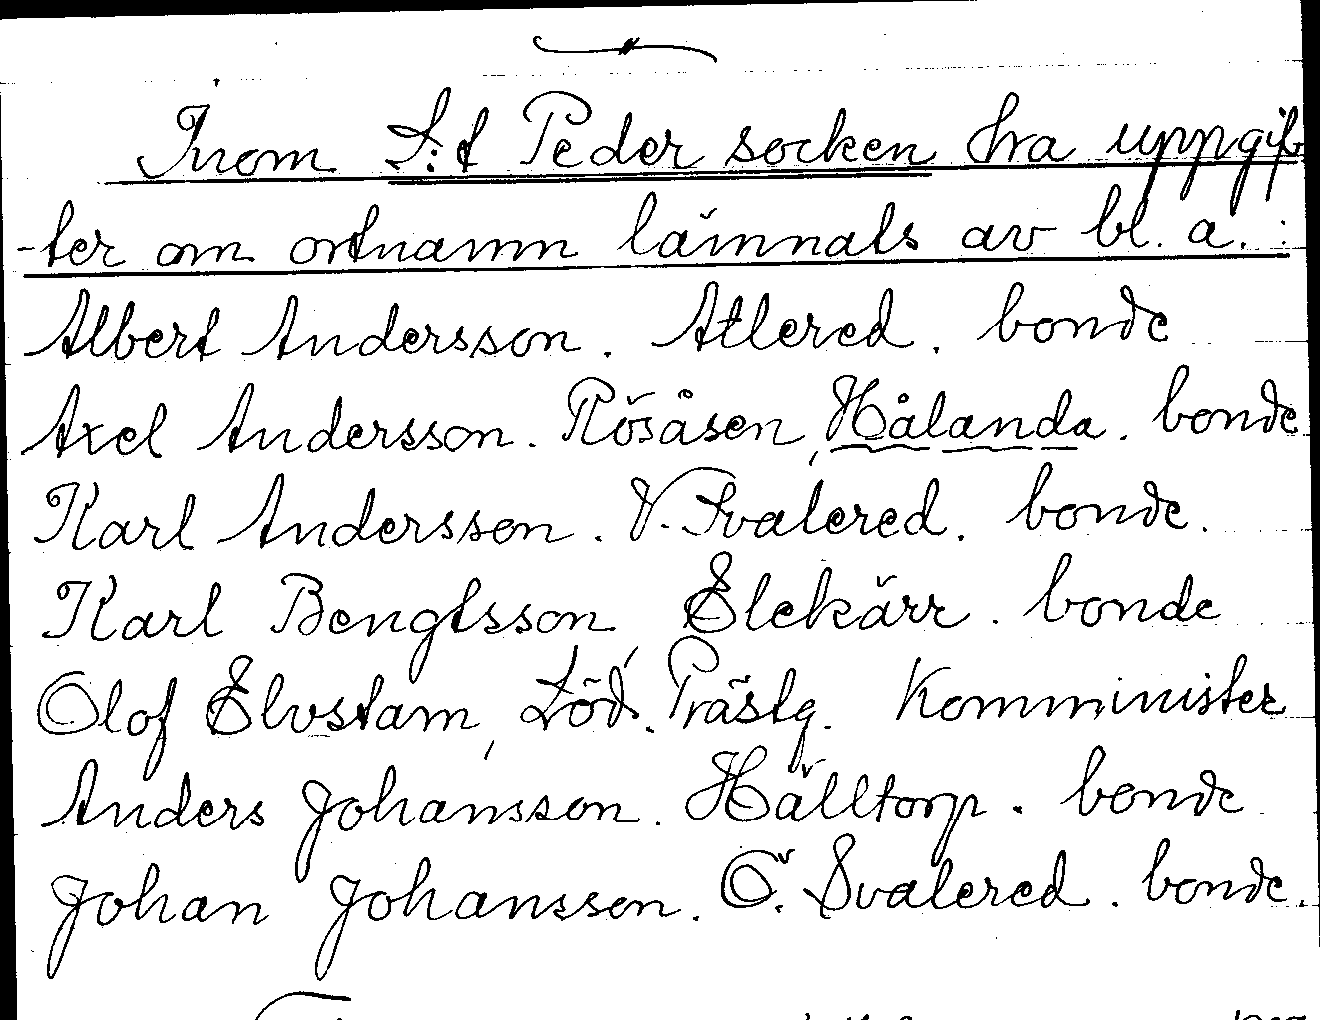 Inom S:t Peder socken hava uppgif-
-ter om ortnamn lämnats av bl. a. :
Albert Andersson. Atlered. bonde
Axel Andersson. Rösåsen, Hålanda. bonde
Karl Andersson. V. Svalered. bonde.
Karl Bengtsson, Elekärr. bonde
Olof Elvstam, Löd. Prästg. Komminister
Anders Johansson. Hälltorp. bonde
Johan Johansson. Ö. Svalered. bonde.